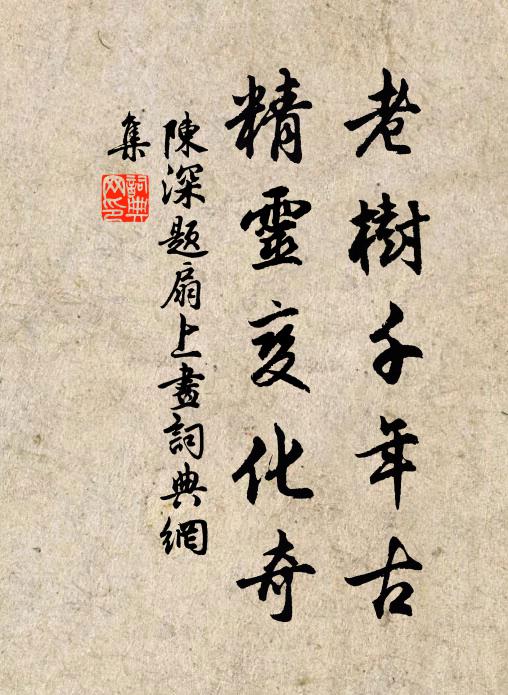 老樹千年古
精靈变化奇
陳深題扇上畫詞典網
集
詞典
网印